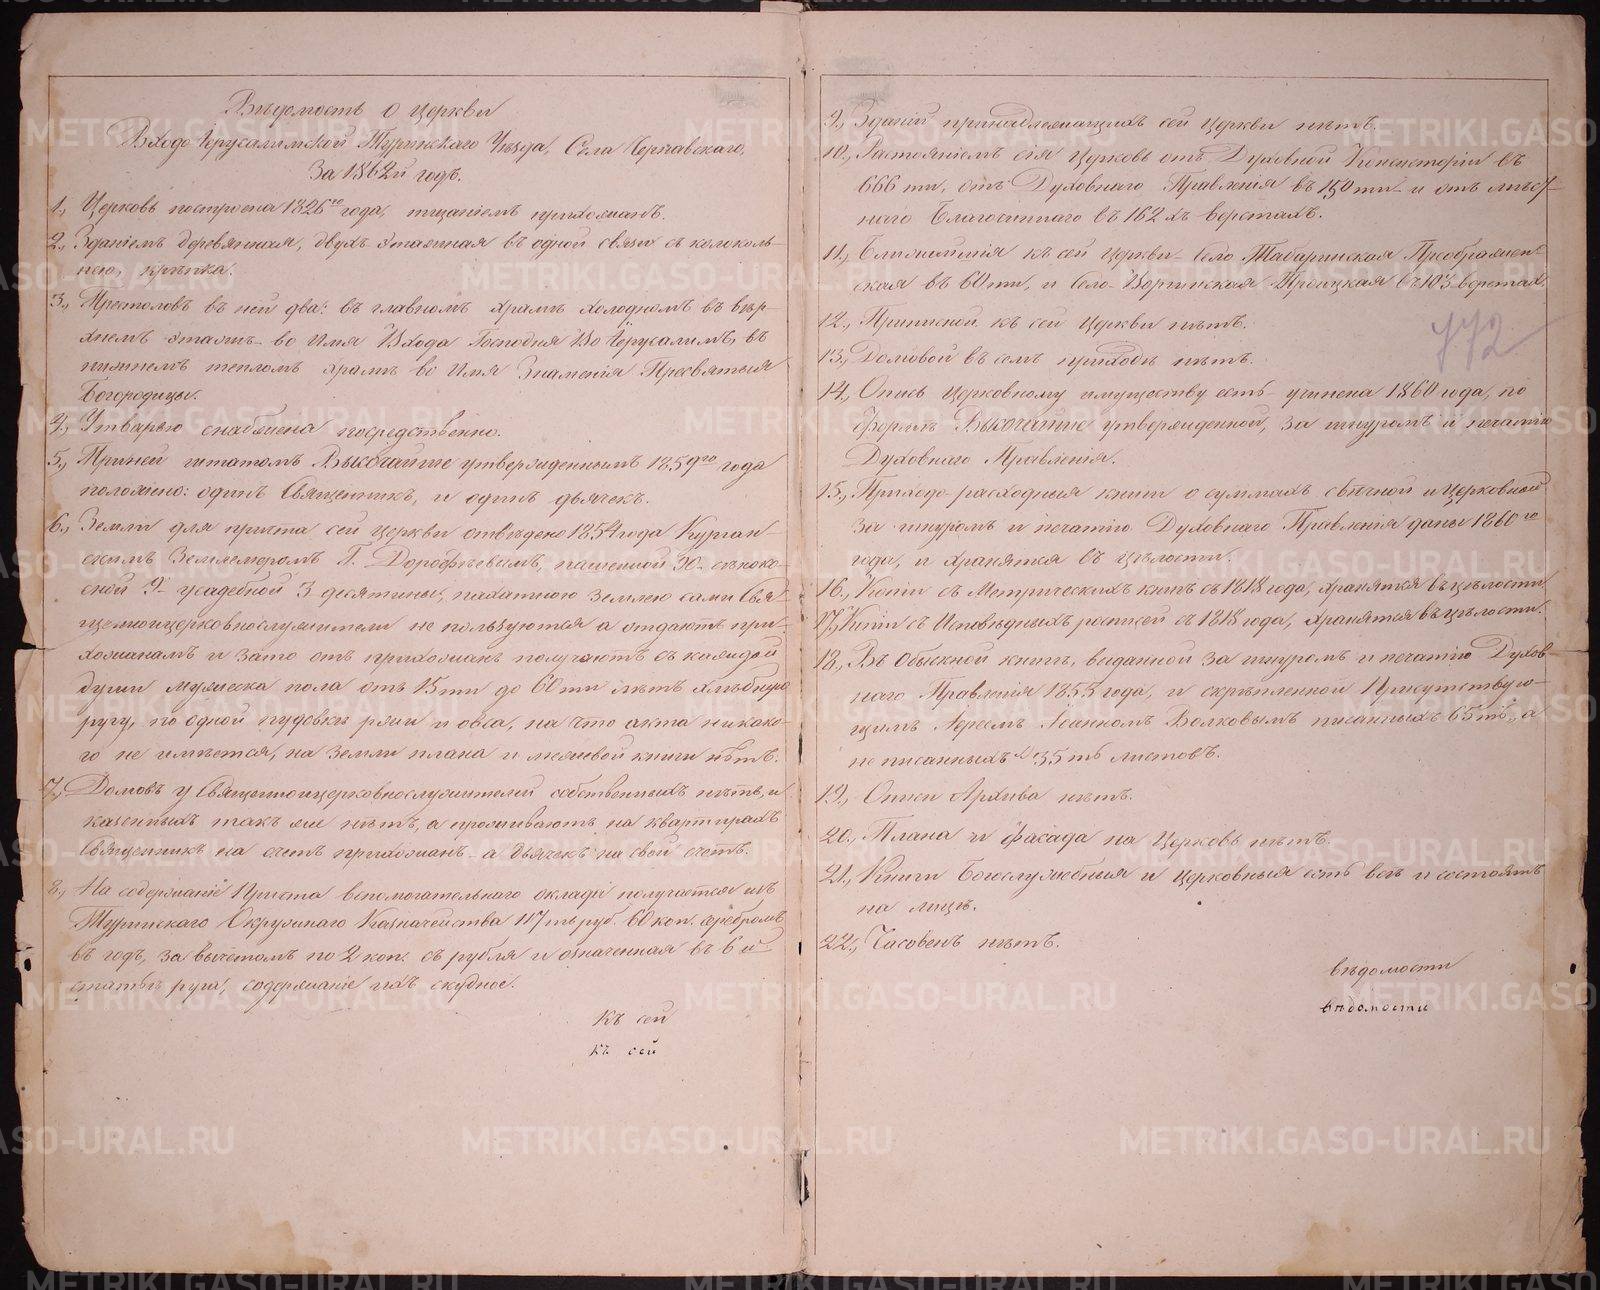 Вѣдомость о Церкви
Входо-Іерусалимской Туринскаго Уѣзда, Села Чернавскаго,
За 1862й годъ.
1., Церковь построена 1826го года, тщаніемъ прихожанъ.
2., Зданіемъ деревянная, двухъ этажная въ одной связи съ колоколь-
нею, крѣпка.
3., Престоловъ въ ней два: въ главномъ храмѣ холодномъ въ вер-
хнемъ этажѣ во Имя Входа Господня Во Іерусалимъ, въ
нижнемъ тепломъ храмѣ во Имя Знаменія Пресвятыя
Богородицы.
4., Утварью снабжена посредственно.
5., При ней штатомъ Высочайше утвержденнымъ 1859го года
положено: одинъ Священникъ, и одинъ дьячекъ.
6., Земли для причта сей Церкви отведено 1854 года Курган-
скимъ Землемѣромъ Г. Дорофѣевымъ, пашенной 90. сѣноко-
сной 9. усадебной 3 десятины, пахатною Землею сами Свя-
щенноицерковнослужители не пользуются а отдаютъ при-
хожанамъ и за то отъ прихожанъ получаютъ съ каждой
души мужеска пола отъ 15ти до 60ти лѣтъ хлѣбную
ругу, по одной пудовкѣ ржи и овса, на что акта никако-
го не имѣется, на Земли плана и межевой книги нѣтъ.
7., Домовъ у Священноицерковнослужителей собственныхъ нѣтъ, и
казенныхъ такъ же нѣтъ, а проживаютъ на квартирахъ
Священникъ на счетъ прихожанъ а дьячекъ на свой счетъ.
8., На содержаніе Причта вспомогательнаго оклада получается изъ
Туринскаго Окружнаго Казначейства 117ть руб. 60 коп. серебромъ
въ годъ, за вычетомъ по 2 коп. съ рубля и означенная въ 6й
статьѣ руга, содержаніе ихъ скудное.
Къ сей
къ сей
9., Зданій принадлежащихъ сей Церкви нѣтъ.
10., Растояніемъ сія Церковь отъ Духовной Консисторіи въ
666 ти, отъ Духовнаго Правленія въ 150 ти и отъ мѣст-
наго Благочиннаго въ 162 хъ верстахъ.
11., Ближайшія къ сей Церкви Село Табаринская Преображен-
ская въ 60 ти, и Село Троицкая въ 103 верстах.
12., Приписной къ сей Церкви нѣтъ.
13., Домовой въ семъ приходѣ нѣтъ.
772
14., Опись Церковному имуществу есть учинена 1860 года, по
формѣ Высочайше утвержденной, за шнуромъ и печатію
Духовнаго Правленія.
15., Приходо-расходныя книги о суммахъ свѣчной и Церковной
за шнуромъ и печатію Духовнаго Правленія даны 1860го
года, и хранятся въ цѣлости.
16., Копіи съ Метрическихъ книгъ съ 1818 года, хранятся въ цѣлости.
17., Копіи съ Исповѣдныхъ росписей съ 1818 года, хранятся въ цѣлости.
18., Въ Обыскной книгѣ, выданной за шнуромъ и печатію Духов-
наго Правленія 1855 года, и скрѣпленной Присутствую-
щимъ Іереемъ Іоанномъ Волковымъ писанныхъ 65ть, а
не писанныхъ 35ть листовъ.
19., Описи Архива нѣтъ.
20., Плана и фасада на Церковь нѣтъ.
21., Книги Богослужебныя и Церковныя есть всѣ и состоятъ
на лицѣ.
22., Часовенъ нѣтъ.
вѣдомости
вѣдомости
METRIKI.GASO-URAL.RU